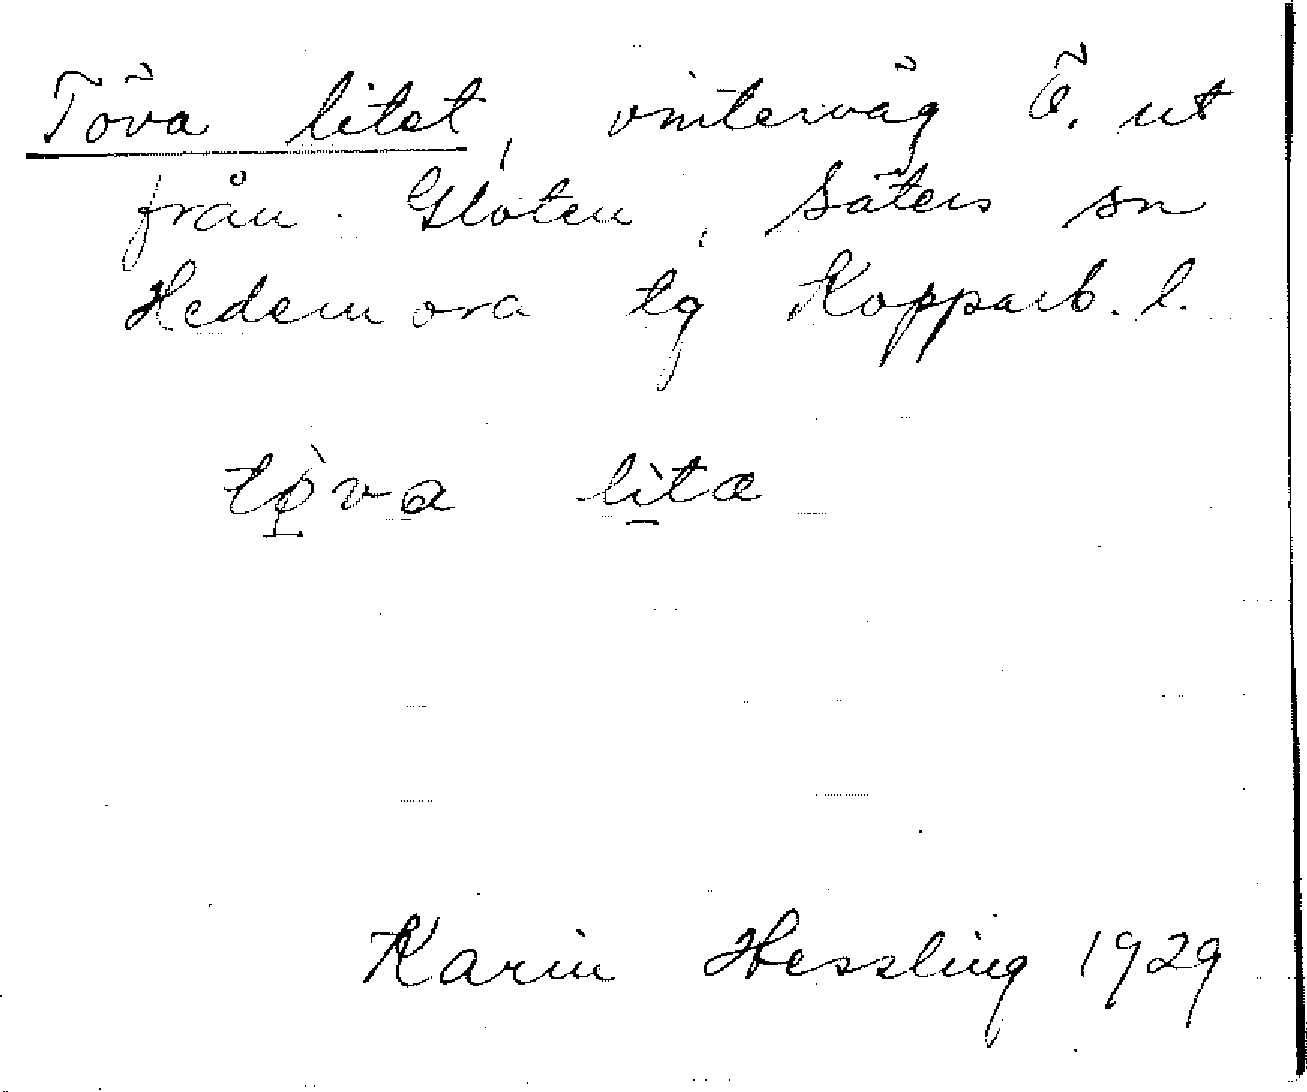 Töva litet, vinterväg Ö. ut
från Gloten, Säters sn
Hedemora tg Kopparb. l.
tø̀va lìta
Karin Hessling 1929